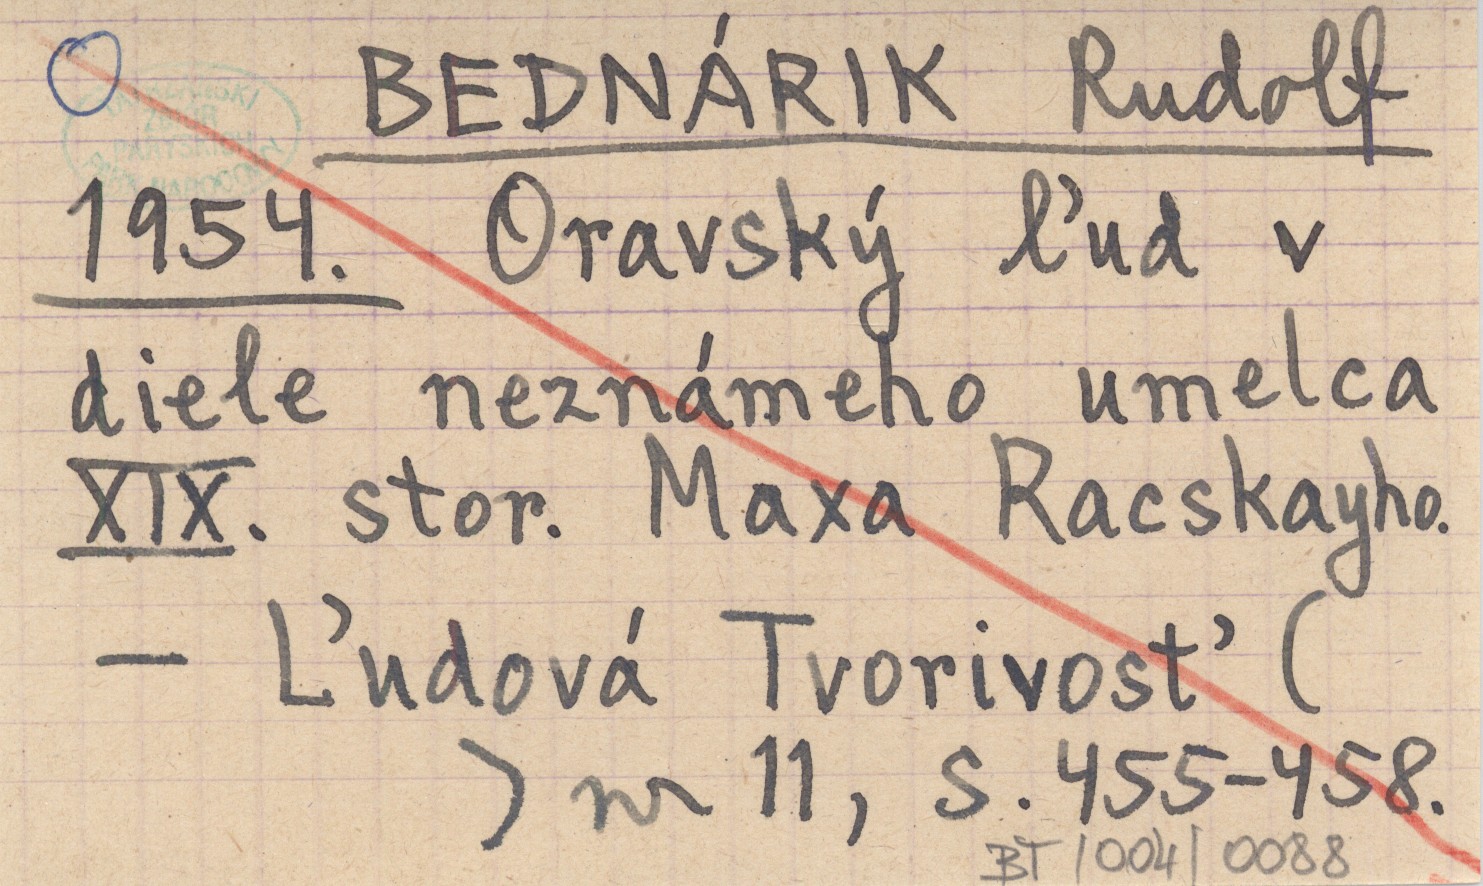 BEDNÁRIK Rudolf
1954. Oravský ľud v
diele neznámeho umelca
XIX. stor. Maxa Racskayho.
— Ľudová Tvorivosť (
) nr 11, s. 455-458.
BT/004/0088